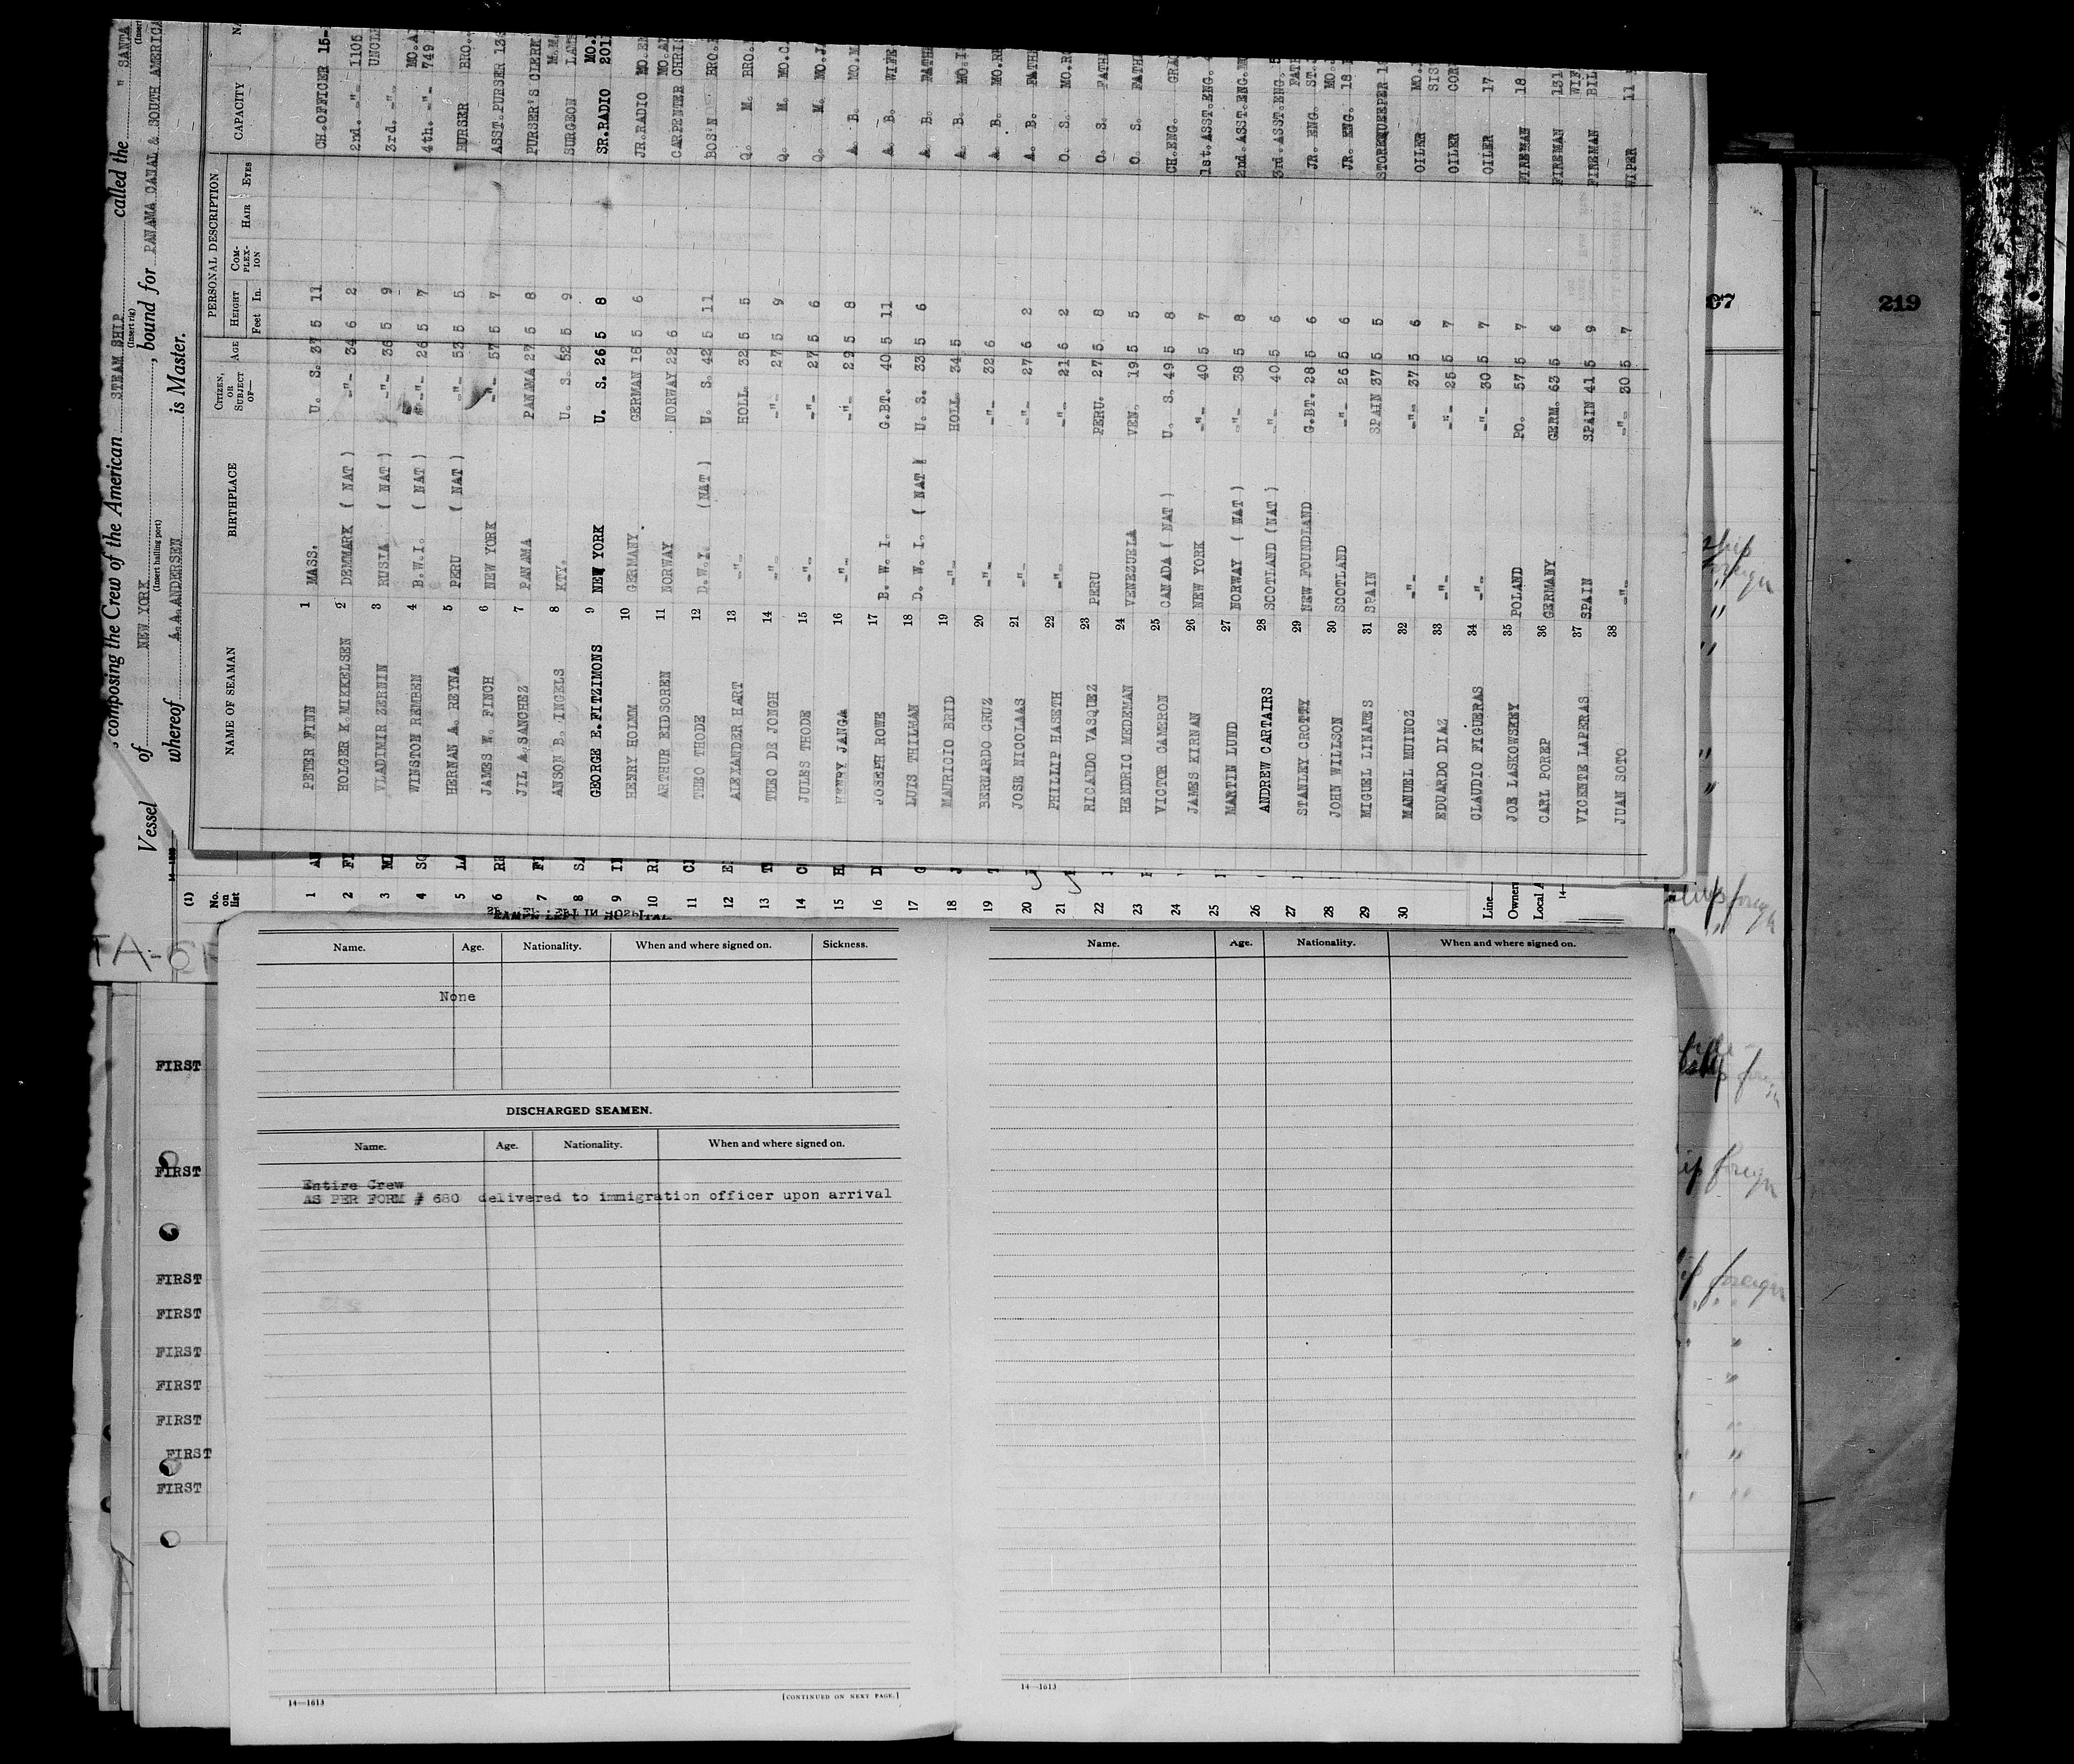 composing the Crew of the American STEAM SHIP called the " SANTA
(Insert rig)
Vessel of NEW YORK , bound for PANAMA CANAL & SOUTH AMERICA
(Insert hailing port)
whereof A.A.ANDERSEN is Master.
NAME OF SEAMAN BIRTHPLACE CITIZEN, OR SUBJECT OF— AGE PERSONAL DESCRIPTION CAPACITY
HEIGHT Feet In. COM-PLEX-ION HAIR EYES
PETER FINN 1 MASS. U. S. 37 5 11 CH.OFFICER 15-
HOLGER K.MIKKELSEN 2 DENMARK ( NAT ) -"- 34 6 2 2nd. -"- 1105
VLADIMIR ZERNIN 3 RUSIA ( NAT ) -"- 36 5 9 3rd. -"- UNCLE
WINSTON REMBEN 4 B.W.I. ( NAT ) -"- 26 5 7 4th. -"- 749
HERNAN A. REYNA 5 PERU ( NAT ) -"- 53 5 5 PURSER BRO.
JAMES W. FINCH 6 NEW YORK -"- 57 5 7 ASST.PURSER
JIL A.SANCHEZ 7 PANAMA PANAMA 27 5 8 PURSER'S CLERK
ANSON B. INGELS 8 KTY. U. S. 52 5 9 SURGEON
GEORGE E.FITZIMONS 9 NEW YORK U. S. 26 5 8 SR.RADIO
HENRY HOLMM 10 GERMANY. GERMAN 18 5 6 JR.RADIO
ARTHUR EIDSOREN 11 NORWAY NORWAY 22 6 CARPENTER
THEO THODE 12 D.W.I. (NAT ) U. S. 42 5 11 BOS'N BRO.
ALEXANDER HART 13 -"- HOLL 32 5 5 Q. M. BRO.
THEO DE JONGH 14 -"- -"- 27 5 9 Q. M. MO.C.
JULES THODE 15 -"- -"- 27 5 6 Q. M. MO.J.
HENRY JANGA 16 -"- -"- 29 5 8 A. B. MO.M
JOSEPH ROWE 17 B. W. I. G.BT. 40 5 11 A. B. WIFE
LUIS THILMAN 18 D. W. I. ( NAT ) U. S. 33 5 6 A. B. FATH
MAURICIO BRID 19 -"- HOLL. 34 5 A. B.
BERNARDO CRUZ 20 -"- -"- 32 6 A. B.
JOSE NICOLAAS 21 -"- -"- 27 6 2 A. B. FATH
PHILLIP HASETH 22 -"- -"- 21 6 2 O. S.
RICARDO VASQUEZ 23 PERU PERU. 27 5 8 O. S. FATH
HENDRIC MEDEMAN 24 VENEZUELA VEN. 19 5 5 O. S. FATH
VICTOR CAMERON 25 CANADA ( NAT ) U. S. 49 5 8 CH.ENG. GRA
JAMES KIRNAN 26 NEW YORK -"- 40 5 7 1st.ASST.ENG.
MARTIN LUND 27 NORWAY ( NAT ) -"- 38 5 8 2nd.ASST.ENG.
ANDREW CARTAIRS 28 SCOTLAND (NAT ) -"- 40 5 6 3rd.ASST.ENG.
STANLEY CROTTY 29 NEW FOUNDLAND G.BT. 28 5 6 JR. ENG.
JOHN WILLSON 30 SCOTLAND -"- 26 5 6 JR. ENG. 18
MIGUEL LINARES 31 SPAIN SPAIN 37 5 5 STOREKEEPER
MANUEL MUINOZ 32 -"- -"- 37 5 6 OILER
EDUARDO DIAZ 33 -"- -"- 25 5 7 OILER
CLAUDIO FIGUERAS 34 -"- -"- 30 5 7 OILER 17
JOE LASKOWSKEY 35 POLAND PO. 57 5 7 FIREMAN 18
CARL POREP 36 GERMANY GERM. 63 5 6 FIREMAN 131
VICENTE LAPERAS 37 SPAIN SPAIN 41 5 9 FIREMAN
JUAN SOTO 38 -"- -"- 30 5 7 WIPER 11
(1) No. on list
1 2 3 4 5 6 7 8 9 10 11 12 13 14 15 16 17 18 19 20 21 22 23 24 25 26 27 28 29 30
Line
Owners
Local A
14—
SEAMEN LEFT IN HOSPITAL
Name. Age. Nationality. When and where signed on. Sickness.
None
DISCHARGED SEAMEN.
Name. Age. Nationality. When and where signed on.
Entire Crew
AS PER FORM # 680 delivered to immigration officer upon arrival
14—1613 [CONTINUED ON NEXT PAGE.]
Name. Age. Nationality. When and where signed on.
14—1613
FIRST
FIRST
FIRST
FIRST
FIRST
FIRST
FIRST
FIRST
FIRST
219
foreign
foreign
foreign